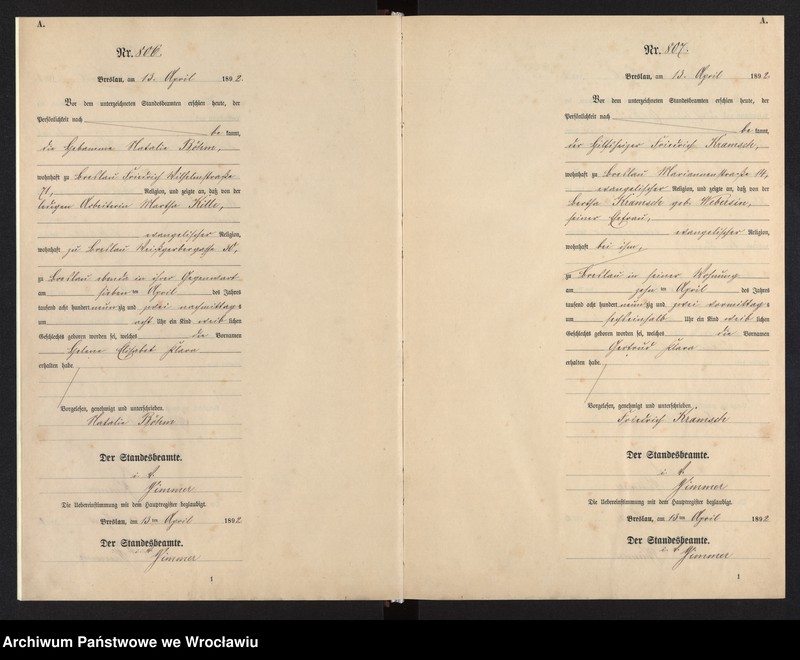 A.
Nr. 806.
Breslau, am 13. April 1892.
Vor dem unterzeichneten Standesbeamten erschien heute, der
Persönlichkeit nach
be kannt,
die Hebamme Natalie Böhm,
wohnhaft zu Breslau Friedrich Wilhelmstraße
71, Religion, und zeigte an, daß von der
ledigen Arbeiterin Martha Kille,
evangelischer Religion,
wohnhaft zu Breslau Weißgerbergasse
zu Breslau ebenda in ihrer Gegenwart
am sieben ten April des Jahres
tausend acht hundert neunzig und zwei nachmittags
um acht Uhr ein Kind weib lichen
Geschlechts geboren worden sei, welches die Vornamen
Helene Elisabet Klara
erhalten habe
Vorgelesen, genehmigt und unterschrieben.
Natalie Böhm
Der Standesbeamte.
Zimmer
Die Uebereinstimmung mit dem Hauptregister beglaubigt.
Breslau, am 13ten April 1892
Der Standesbeamte.
Zimmer
1
A.
Nr. 807.
Breslau, am 13. April 1892
Vor dem unterzeichneten Standesbeamten erschien heute, der
Persönlichkeit nach
be kannt,
der Hilfsheizer Friedrich Kramsch,
wohnhaft zu Breslau Mariannenstraße 14,
evangelischer Religion, und zeigte an, daß von der
Bertha Kramsch geb. Webersin,
seiner Ehefrau,
evangelischer Religion,
wohnhaft bei ihm,
zu Breslau in seiner Wohnung
am zehn ten April des Jahres
tausend acht hundert neunzig und zwei vormittags
um sechseinhalb Uhr ein Kind weib lichen
Geschlechts geboren worden sei, welches die Vornamen
Gertrud Klara
erhalten habe.
Vorgelesen, genehmigt und unterschrieben.
Friedrich Kramsch
Der Standesbeamte.
Zimmer
Die Uebereinstimmung mit dem Hauptregister beglaubigt.
Breslau, am 13ten April 1892
Der Standesbeamte.
Zimmer
1
Archiwum Państwowe we Wrocławiu